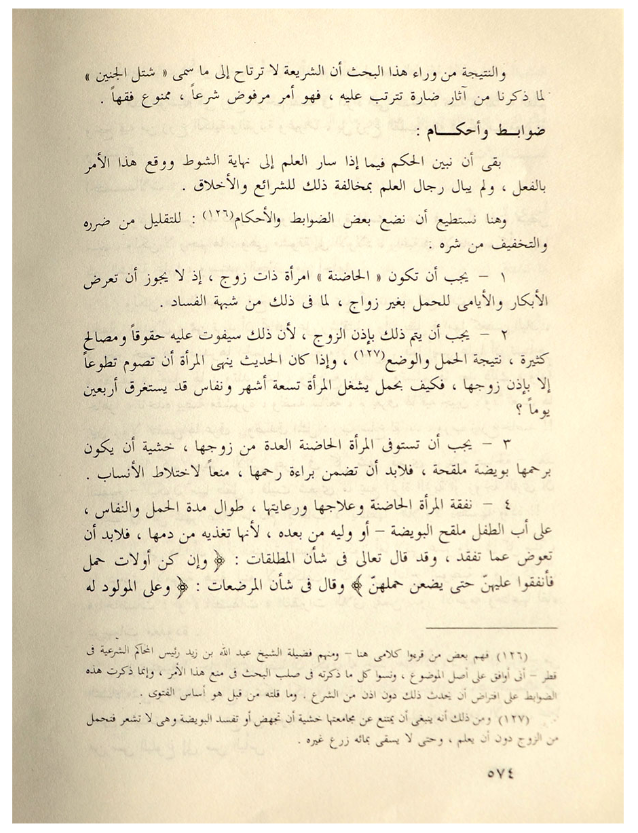 والنتيجة من وراء هذا البحث أن الشريعة لا ترتاح إلى ما سمى « شتل الجنين »
لما ذكرنا من آثار ضارة تترتب عليه ، فهو أمر مرفوض شرعاً ، ممنوع فقهاً .
ضوابـط وأحكـــام :
بقى أن نبين الحكم فيما إذا سار العلم إلى نهاية الشوط ووقع هذا الأمر
بالفعل ، ولم يبال رجال العلم بمخالفة ذلك للشرائع والأخلاق .
وهنا نستطيع أن نضع بعض الضوابط والأحكام(١٢٦) : للتقليل من ضرره
والتخفيف من شره .
١ – يجب أن تكون « الحاضنة » امرأة ذات زوج ، إذ لا يجوز أن تعرض
الأبكار والأيامى للحمل بغير زواج ، لما فى ذلك من شبهة الفساد .
٢ – يجب أن يتم ذلك بإذن الزوج ، لأن ذلك سيفوت عليه حقوقاً ومصالح
كثيرة ، نتيجة الحمل والوضع(١٢٧) ، وإذا كان الحديث ينهى المرأة أن تصوم تطوعاً
إلا بإذن زوجها ، فكيف بحمل يشغل المرأة تسعة أشهر ونفاس قد يستغرق أربعين
يوماً ؟
٣ – يجب أن تستوفى المرأة الحاضنة العدة من زوجها ، خشية أن يكون
برحمها بويضة ملقحة ، فلابد أن تضمن براءة رحمها ، منعاً لاختلاط الأنساب .
٤ – نفقة المرأة الحاضنة وعلاجها ورعايتها ، طوال مدة الحمل والنفاس ،
على أب الطفل ملقح البويضة – أو وليه من بعده ، لأنها تغذيه من دمها ، فلابد أن
تعوض عما تفقد ، وقد قال تعالى فى شأن المطلقات : ﴿ وإن كن أولات حمل
فأنفقوا عليهنّ حتى يضعن حملهنّ ﴾ وقال فى شأن المرضعات : ﴿ وعلى المولود له
(١٢٦) فهم بعض من قرءوا كلامى هنا – ومنهم فضيلة الشيخ عبد الله بن زيد رئيس المحاكم الشرعية فى
قطر – أنى أوافق على أصل الموضوع ، ونسوا كل ما ذكرته فى صلب البحث فى منع هذا الأمر ، وإنما ذكرت هذه
الضوابط على افتراض أن يحدث ذلك دون اذن من الشرع . وما قلته من قبل هو أساس الفتوى .
(١٢٧) ومن ذلك أنه ينبغى أن يمتنع عن مجامعتها خشية أن تجهض أو تفسد البويضة وهى لا تشعر فتحمل
من الزوج دون أن يعلم ، وحتى لا يسقى بمائه زرع غيره .
٥٧٤